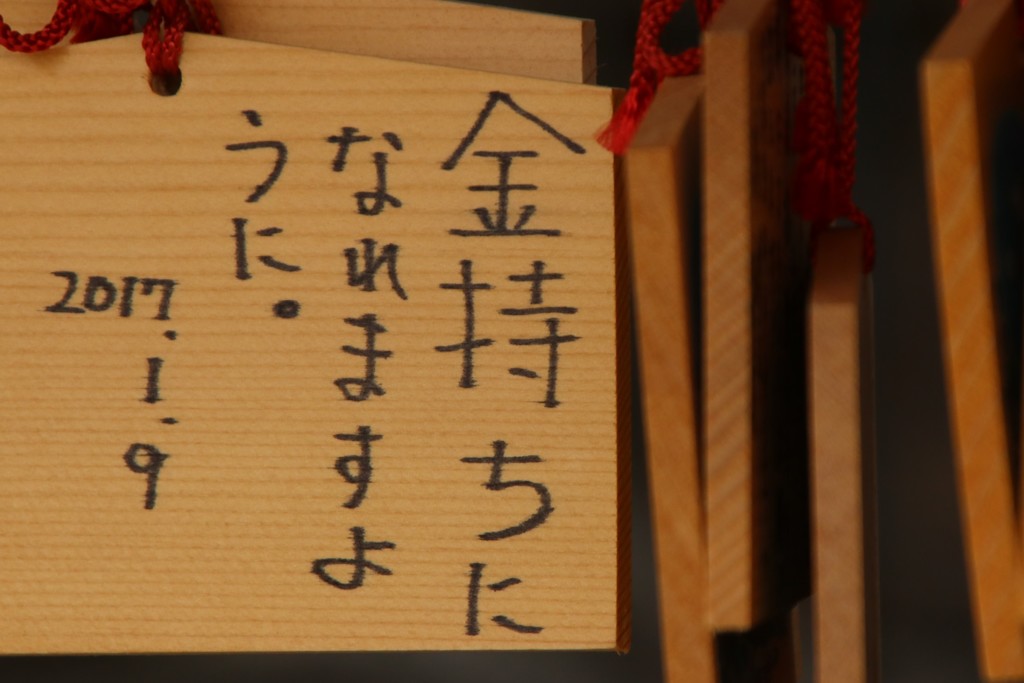 金持ちに
なれますよ
うに。
2017.1.9